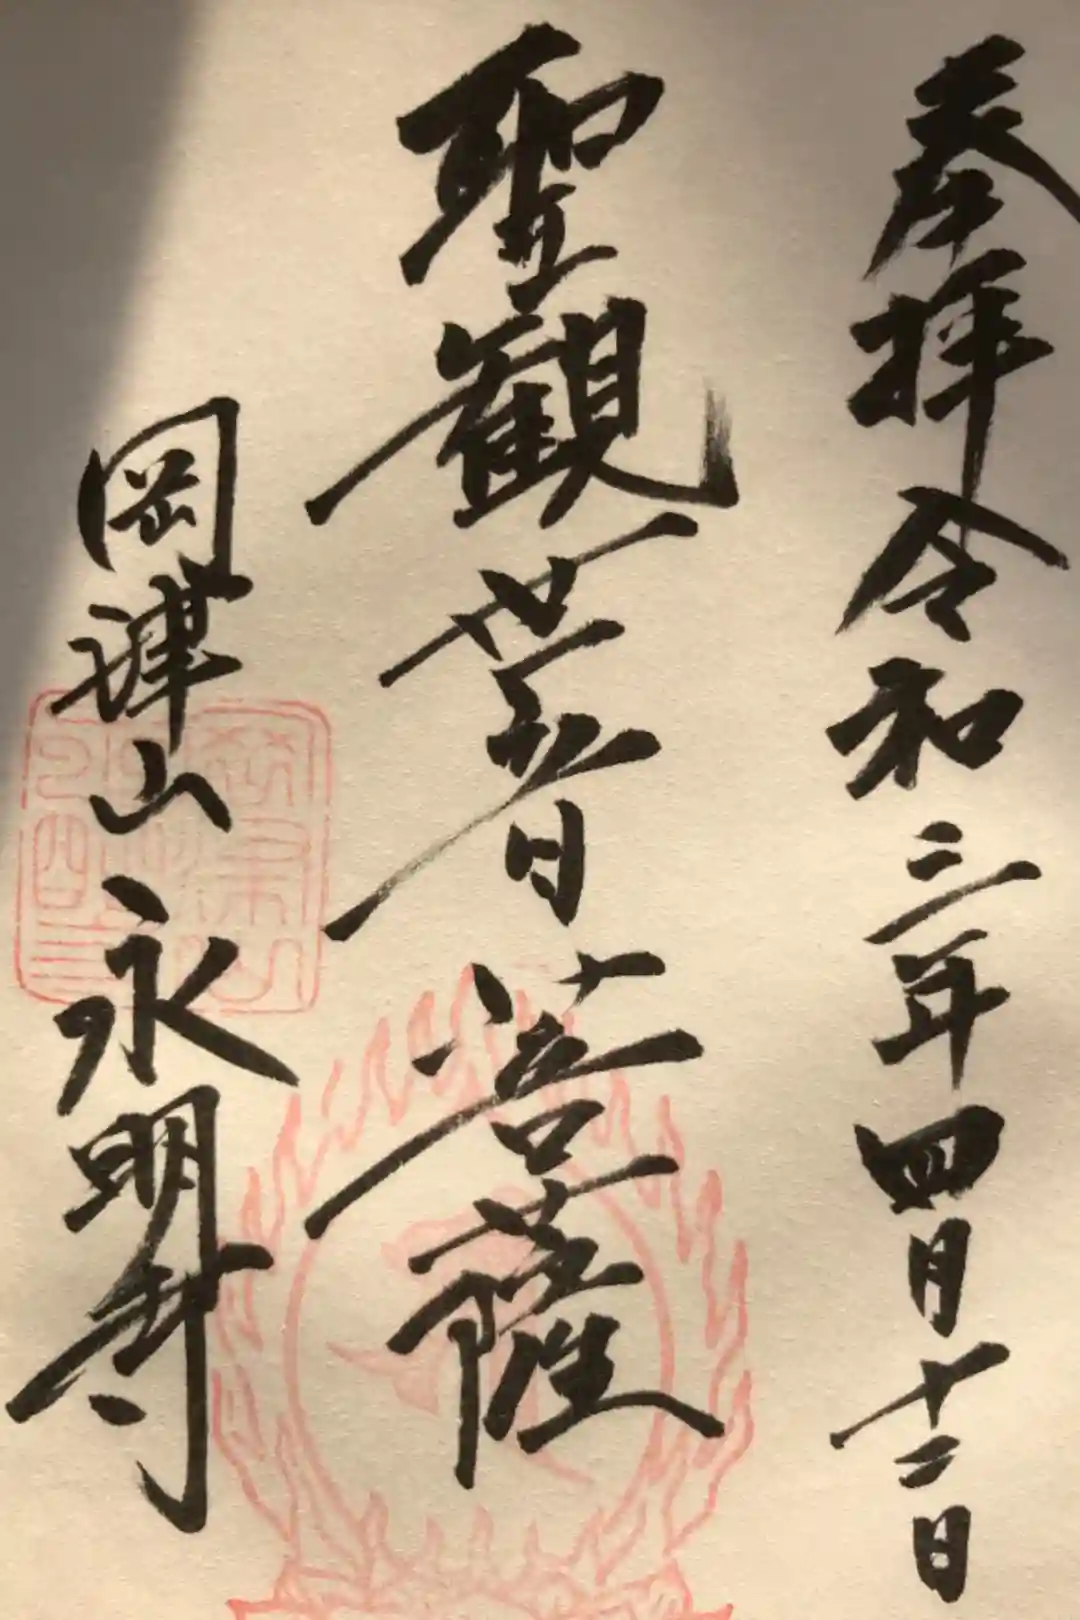 奉拝令和三年四月十二日
聖観世音菩薩
岡津山永明寺